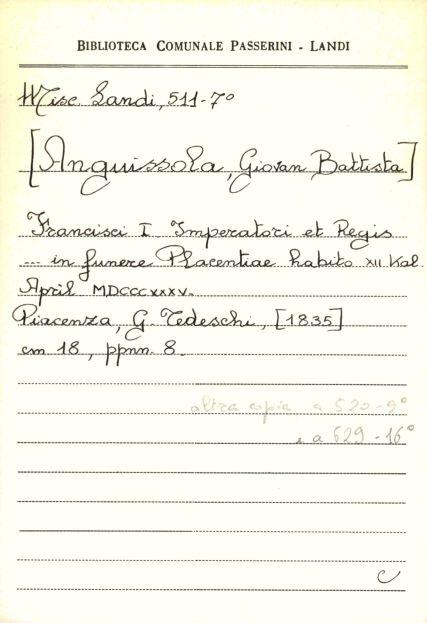 BIBLIOTECA COMUNALE PASSERINI - LANDI
Misc. Landi, 511-7°
[Anguissola, Giovan Battista]
Francisci I Imperatori et Regis
... in funere Placentiae habito XII Kal.
April MDCCCXXXV.
Piacenza, G. Tedeschi, [1835]
cm 18, ppnn. 8.
altra copia a 520-9°
e a 629-16°
C